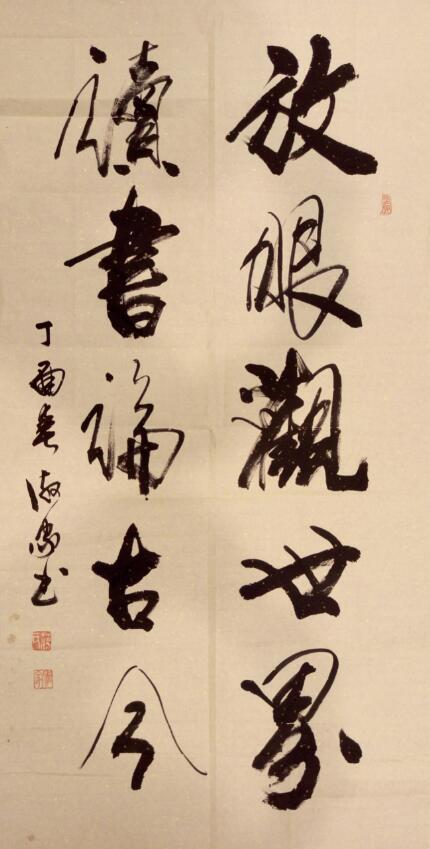 放眼觀世界
讀書論古今
丁酉春 書